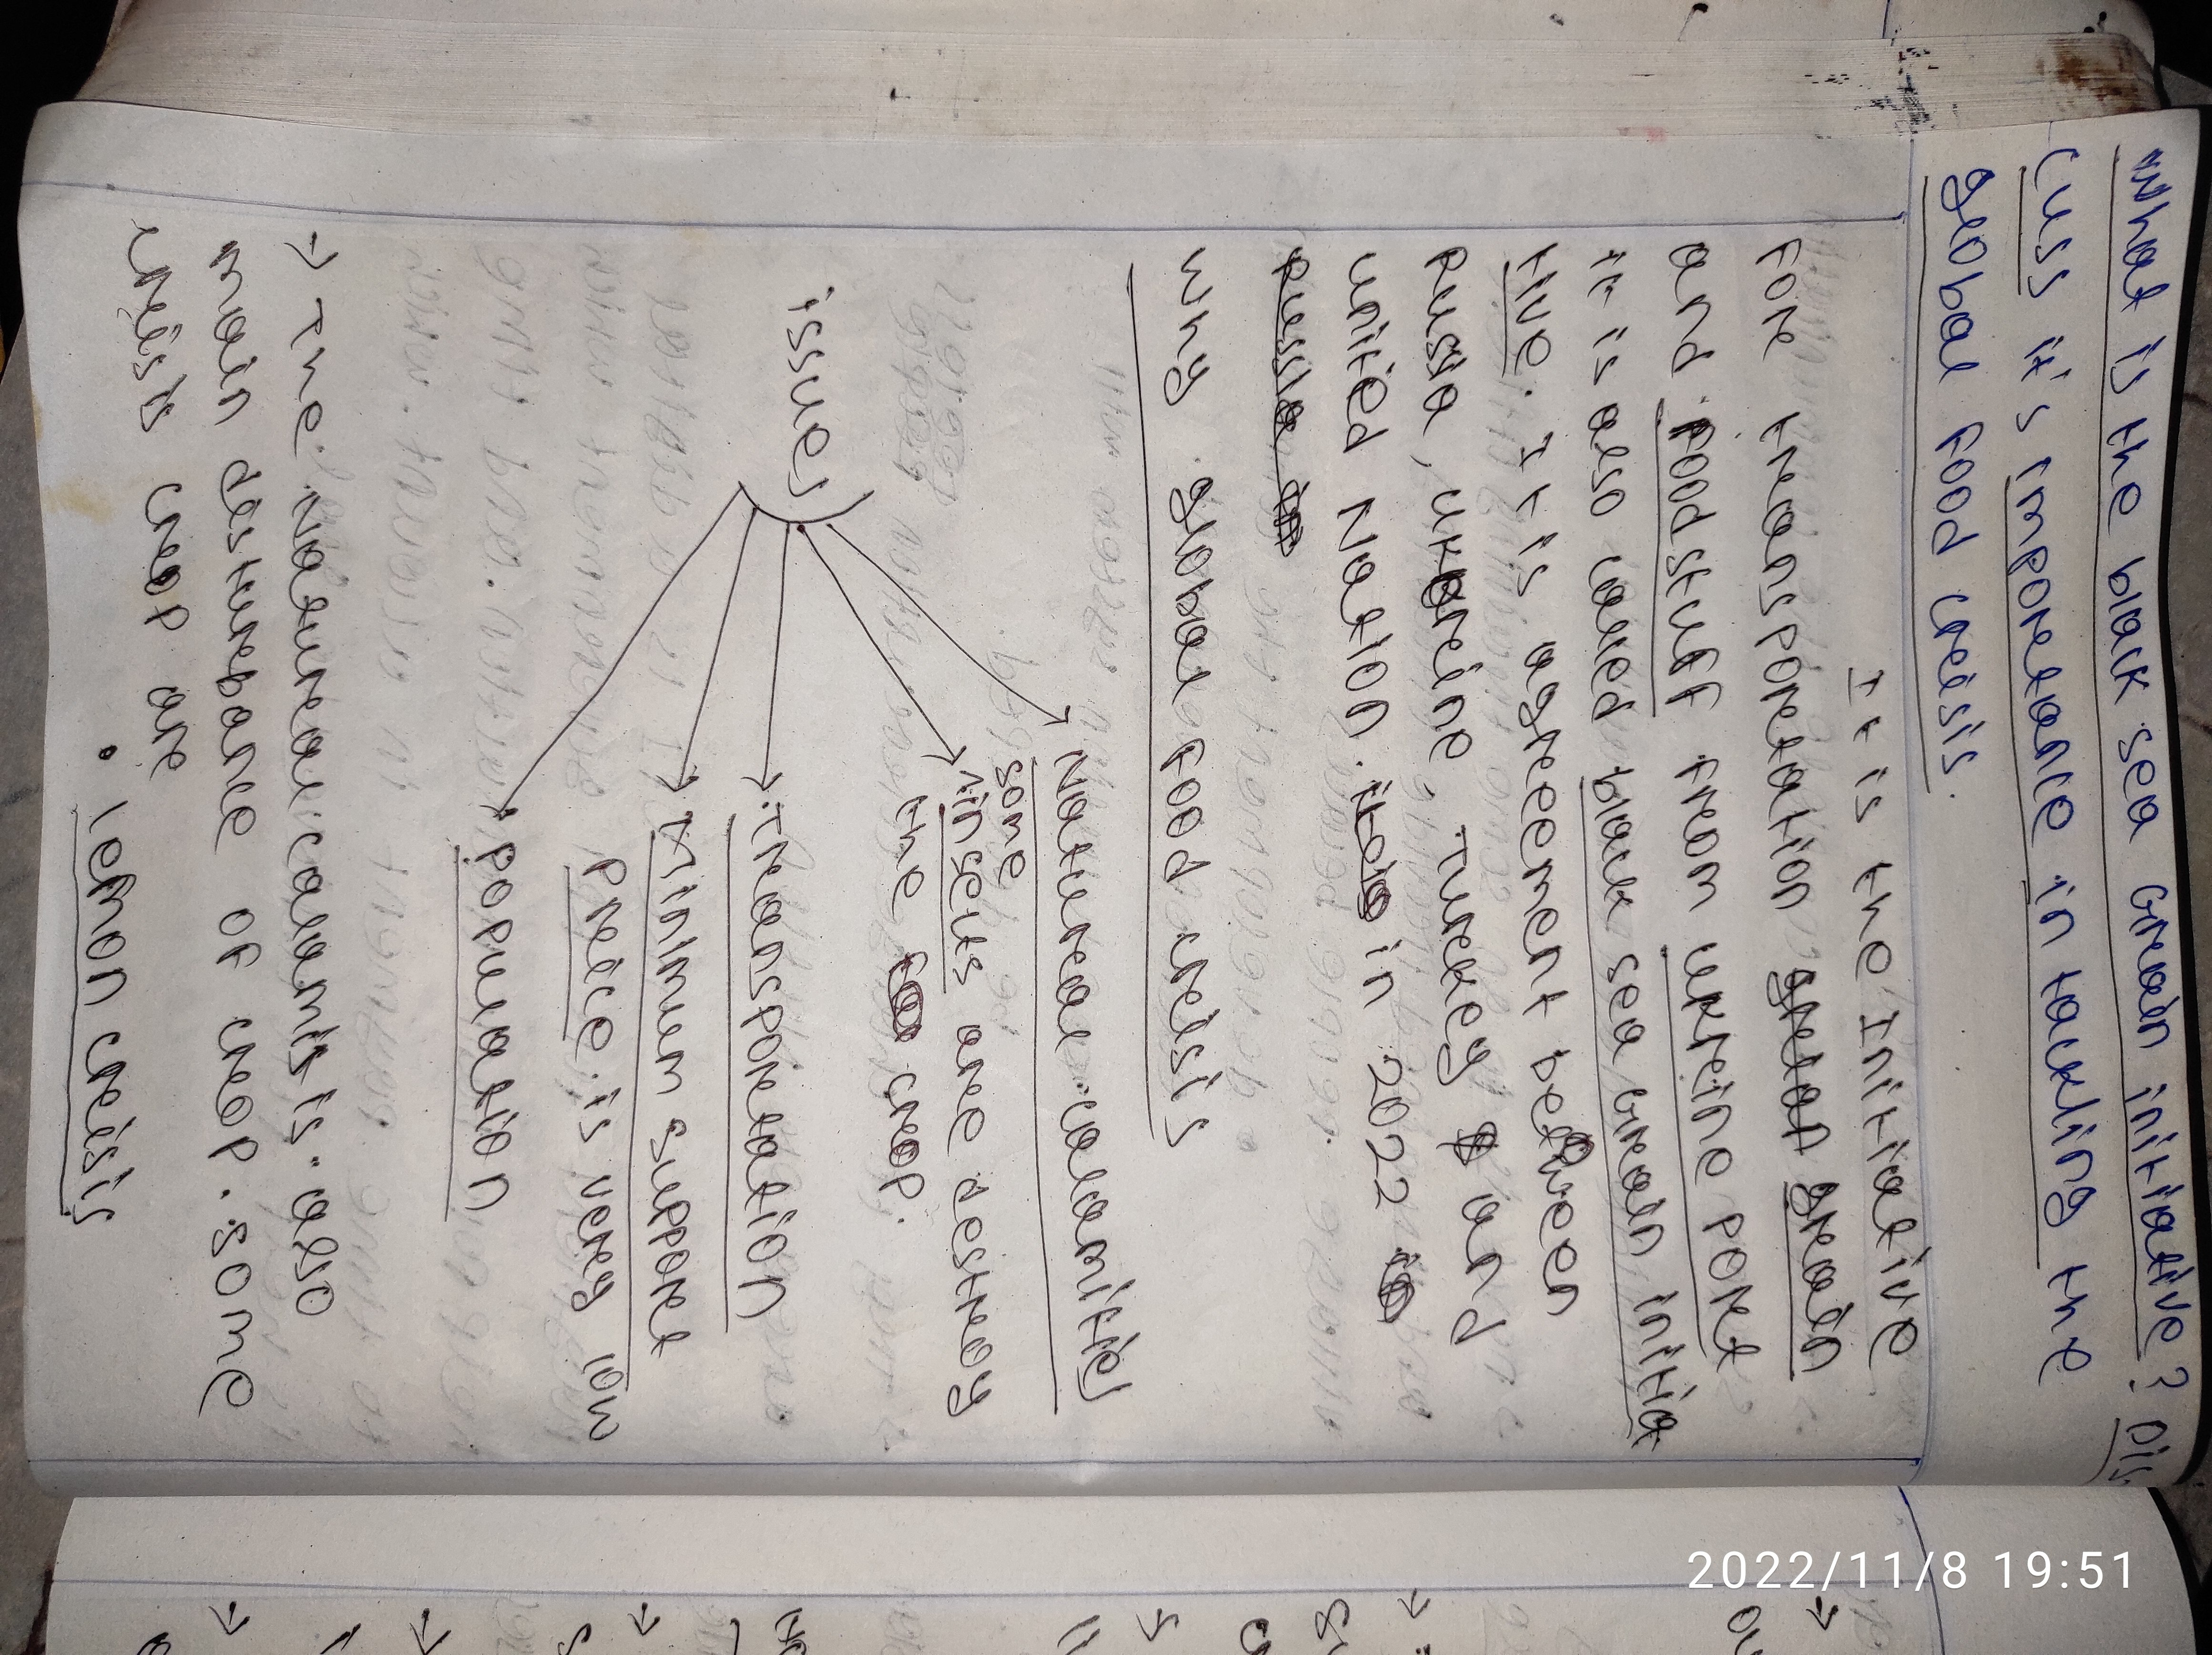 What is the black sea Grain initiative? Dis
cuss it's importance in tackling the
global food crisis.
It is the Initiative
for transportation grain
and foodstuff from ukrine port
it is also called black sea Grain initia
tive. It is agreement between
Russia, ukraine, Turkey & and
united Nation in 2022
Russia
why global food crisis
issues
Natural calamities
some
insects are destroy
the crop.
Transportation
Minimum support
price is very low
population
→ The natural calamis is also
main desturbance of crop. some
crisis crop are
• lemon crisis
2022/11/8 19:51